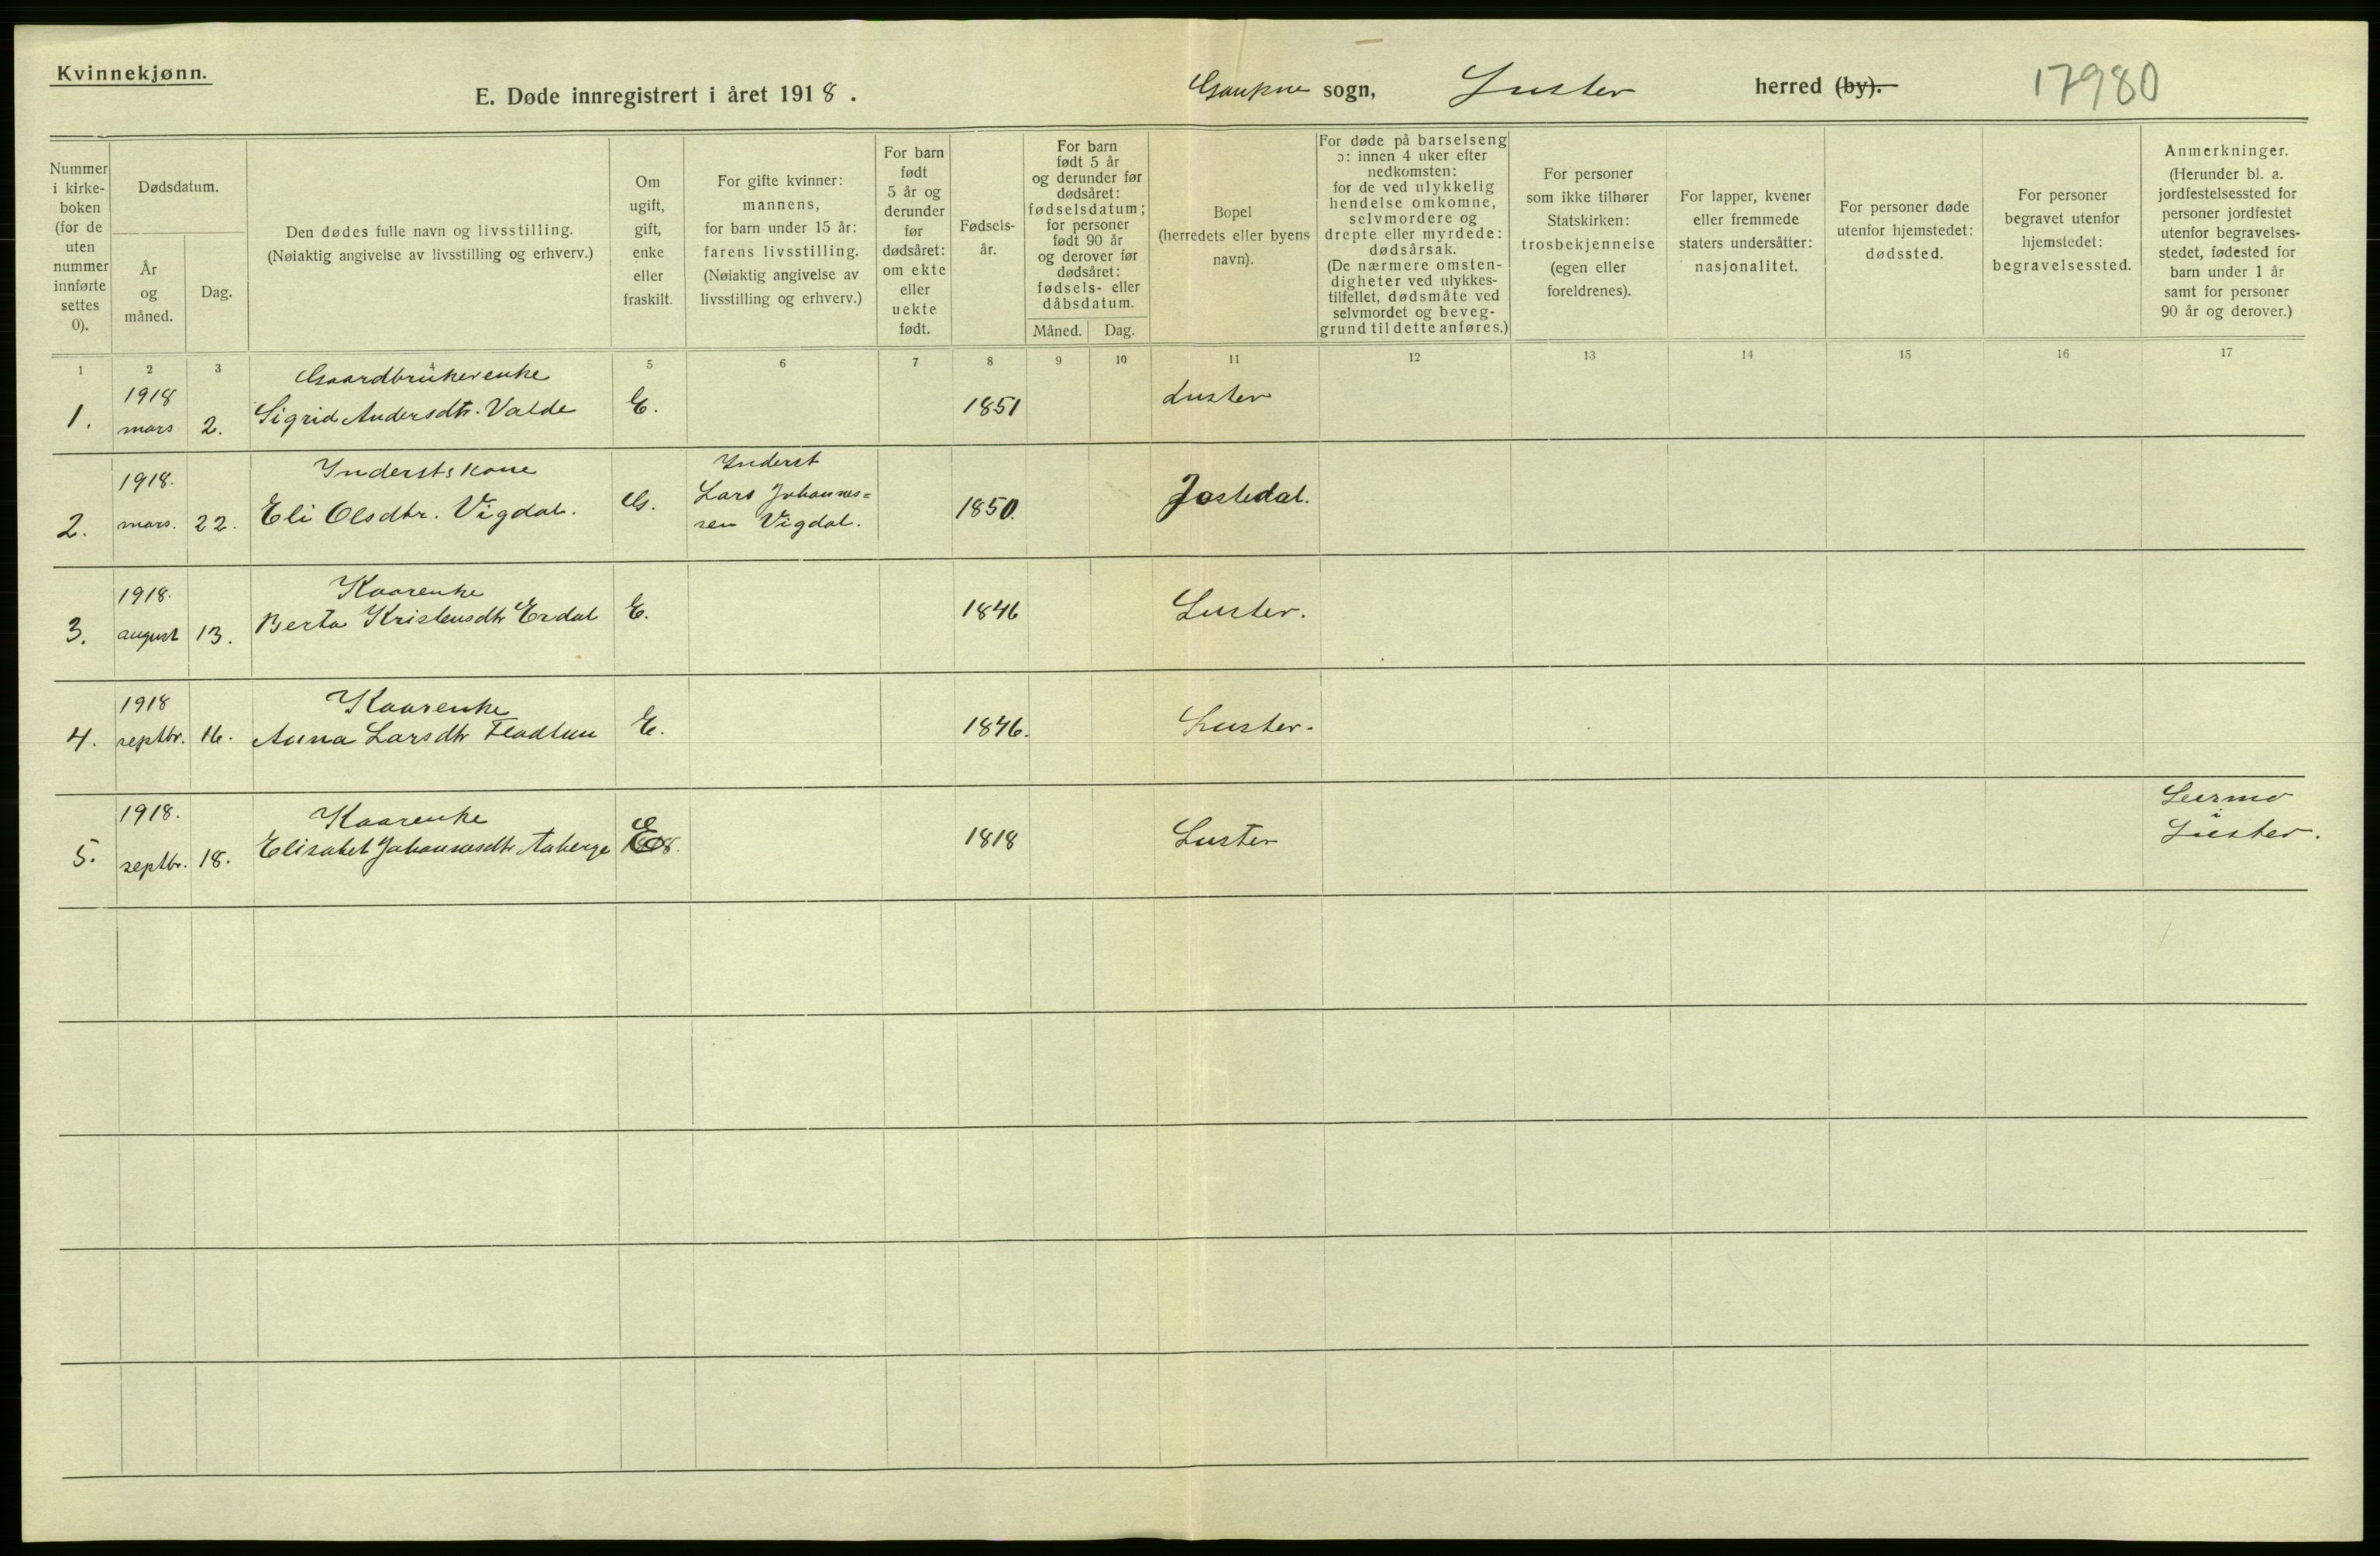 Kvinnekjønn.
E. Døde innregistrert i året 1918. Gaupne sogn, Luster herred (by). 17980
Nummer i kirke- boken (for de uten nummer innførte settes 0).
Dødsdatum.
År og måned.
Dag.
Den dødes fulle navn og livsstilling.
(Nøiaktig angivelse av livsstilling og erhverv.)
Om ugift, gift, enke eller fraskilt.
For gifte kvinner: mannens, for barn under 15 år: farens livsstilling. (Nøiaktig angivelse av livsstilling og erhverv.)
For barn født 5 år og derunder før dødsåret: om ekte eller uekte født.
Fødsels- år.
For barn født 5 år og derunder før dødsåret: fødselsdatum; for personer født 90 år og derover før dødsåret: fødsels- eller dåbsdatum.
Måned. Dag.
Bopel (herredets eller byens navn).
For døde på barselseng ɔ: innen 4 uker efter nedkomsten: for de ved ulykkelig hendelse omkomne, selvmordere og drepte eller myrdede: dødsårsak. (De nærmere omsten- digheter ved ulykkes- tilfellet, dødsmåte ved selvmordet og beveg- grund til dette anføres.)
For personer som ikke tilhører Statskirken: trosbekjennelse (egen eller foreldrenes).
For lapper, kvener eller fremmede staters undersåtter: nasjonalitet.
For personer døde utenfor hjemstedet: dødssted.
For personer begravet utenfor hjemstedet: begravelsessted.
Anmerkninger. (Herunder bl. a. jordfestelsessted for personer jordfestet utenfor begravelses- stedet, fødested for barn under 1 år samt for personer 90 år og derover.)
1 2 3 5 6 7 8 9 10 11 12 13 14 15 16 17
1918 Gaardbrukerenke Luster
1. mars 2. Sigrid Andersdtr. Valde E. 1851
1918. Inderstskone Inderst
2. mars. 22. Eli Olsdtr. Vigdal. G. Lars Johannes= 1850. Jostedal.
sen Vigdal.
1918. Kaarenke
3. august 13. Berta Kristensdtr Erdal E. 1846 Luster.
1918 Kaarenke
4. septbr. 16. Anna Larsdtr Flodtun E. 1846. Luster.
1918. Kaarenke Leirmo
5. septbr. 18. Elisabet Johannesdtr Aaberge E 1818 Luster i Luster.